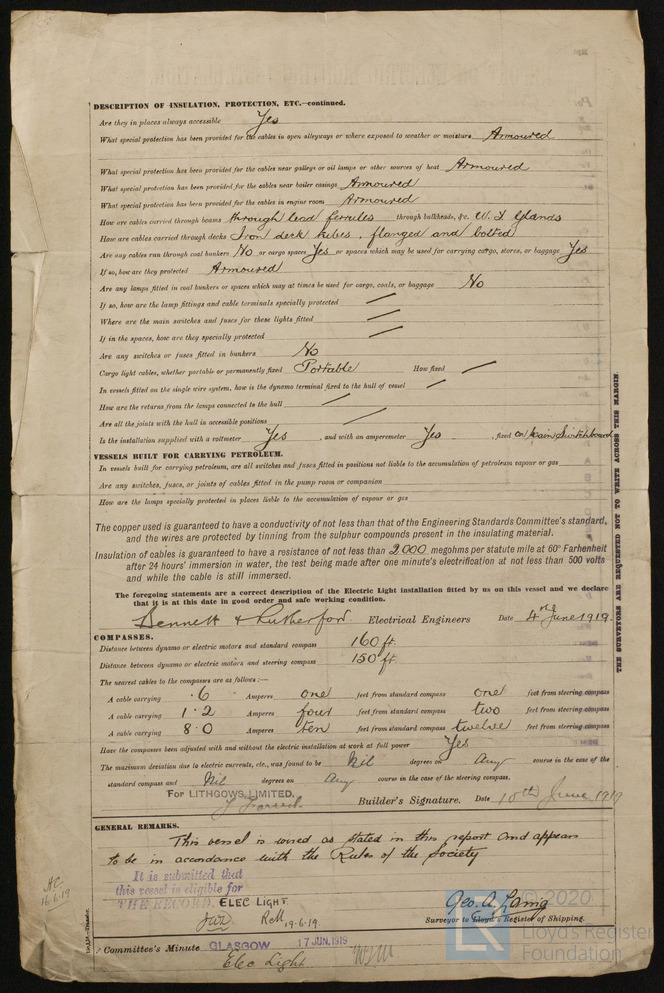 DESCRIPTION OF INSULATION, PROTECTION, ETC.—continued.
Are they in places always accessible Yes
What special protection has been provided for the cables in open alleyways or where exposed to weather or moisture Armoured
What special protection has been provided for the cables near galleys or oil lamps or other sources of heat Armoured
What special protection has been provided for the cables near boiler casings Armoured
What special protection has been provided for the cables in engine room Armoured
How are cables carried through beams through lead ferrules through bulkheads, &c. W. T Glands
How are cables carried through decks Iron deck tubes, flanged and bolted
Are any cables run through coal bunkers No or cargo spaces Yes or spaces which may be used for carrying cargo, stores, or baggage Yes
If so, how are they protected Armoured
Are any lamps fitted in coal bunkers or spaces which may at times be used for cargo, coals, or baggage No
If so, how are the lamp fittings and cable terminals specially protected
Where are the main switches and fuses for these lights fitted
If in the spaces, how are they specially protected
Are any switches or fuses fitted in bunkers No
Cargo light cables, whether portable or permanently fixed Portable How fixed
In vessels fitted on the single wire system, how is the dynamo terminal fixed to the hull of vessel
How are the returns from the lamps connected to the hull
Are all the joints with the hull in accessible positions
Is the installation supplied with a voltmeter Yes, and with an amperemeter Yes, fixed on Main Switchboard
VESSELS BUILT FOR CARRYING PETROLEUM.
In vessels built for carrying petroleum, are all switches and fuses fitted in positions not liable to the accumulation of petroleum vapour or gas
Are any switches, fuses, or joints of cables fitted in the pump room or companion
How are the lamps specially protected in places liable to the accumulation of vapour or gas
The copper used is guaranteed to have a conductivity of not less than that of the Engineering Standards Committee's standard,
and the wires are protected by tinning from the sulphur compounds present in the insulating material.
Insulation of cables is guaranteed to have a resistance of not less than 2,000 megohms per statute mile at 60° Farhenheit
after 24 hours' immersion in water, the test being made after one minute's electrification at not less than 500 volts
and while the cable is still immersed.
The foregoing statements are a correct description of the Electric Light installation fitted by us on this vessel and we declare
that it is at this date in good order and safe working condition.
Bennett & Rutherford. Electrical Engineers Date 4th June 1919.
COMPASSES.
Distance between dynamo or electric motors and standard compass 160 ft.
Distance between dynamo or electric motors and steering compass 150 ft.
The nearest cables to the compasses are as follows:—
A cable carrying .6 Amperes one feet from standard compass one feet from steering compass
A cable carrying 1.2 Amperes four feet from standard compass two feet from steering compass
A cable carrying 8.0 Amperes ten feet from standard compass twelve feet from steering compass
Have the compasses been adjusted with and without the electric installation at work at full power Yes
The maximum deviation due to electric currents, etc., was found to be Nil degrees on Any course in the case of the
standard compass and Nil degrees on Any course in the case of the steering compass.
FOR LITHGOWS, LIMITED.
Builder's Signature. Date 10th June 1919
GENERAL REMARKS.
This vessel is wired as stated in this report and appears
to be in accordance with the Rules of the Society
It is submitted that
this vessel is eligible for
THE RECORD. ELEC LIGHT.
19.6.19.
16.6.19
Geo. A. Laing
Surveyor to Lloyd's Register of Shipping.
Committee's Minute GLASGOW 17 JUN. 1919
Elec Light
THE SURVEYORS ARE REQUESTED NOT TO WRITE ACROSS THIS MARGIN.
© 2020
Lloyd's Register
Foundation